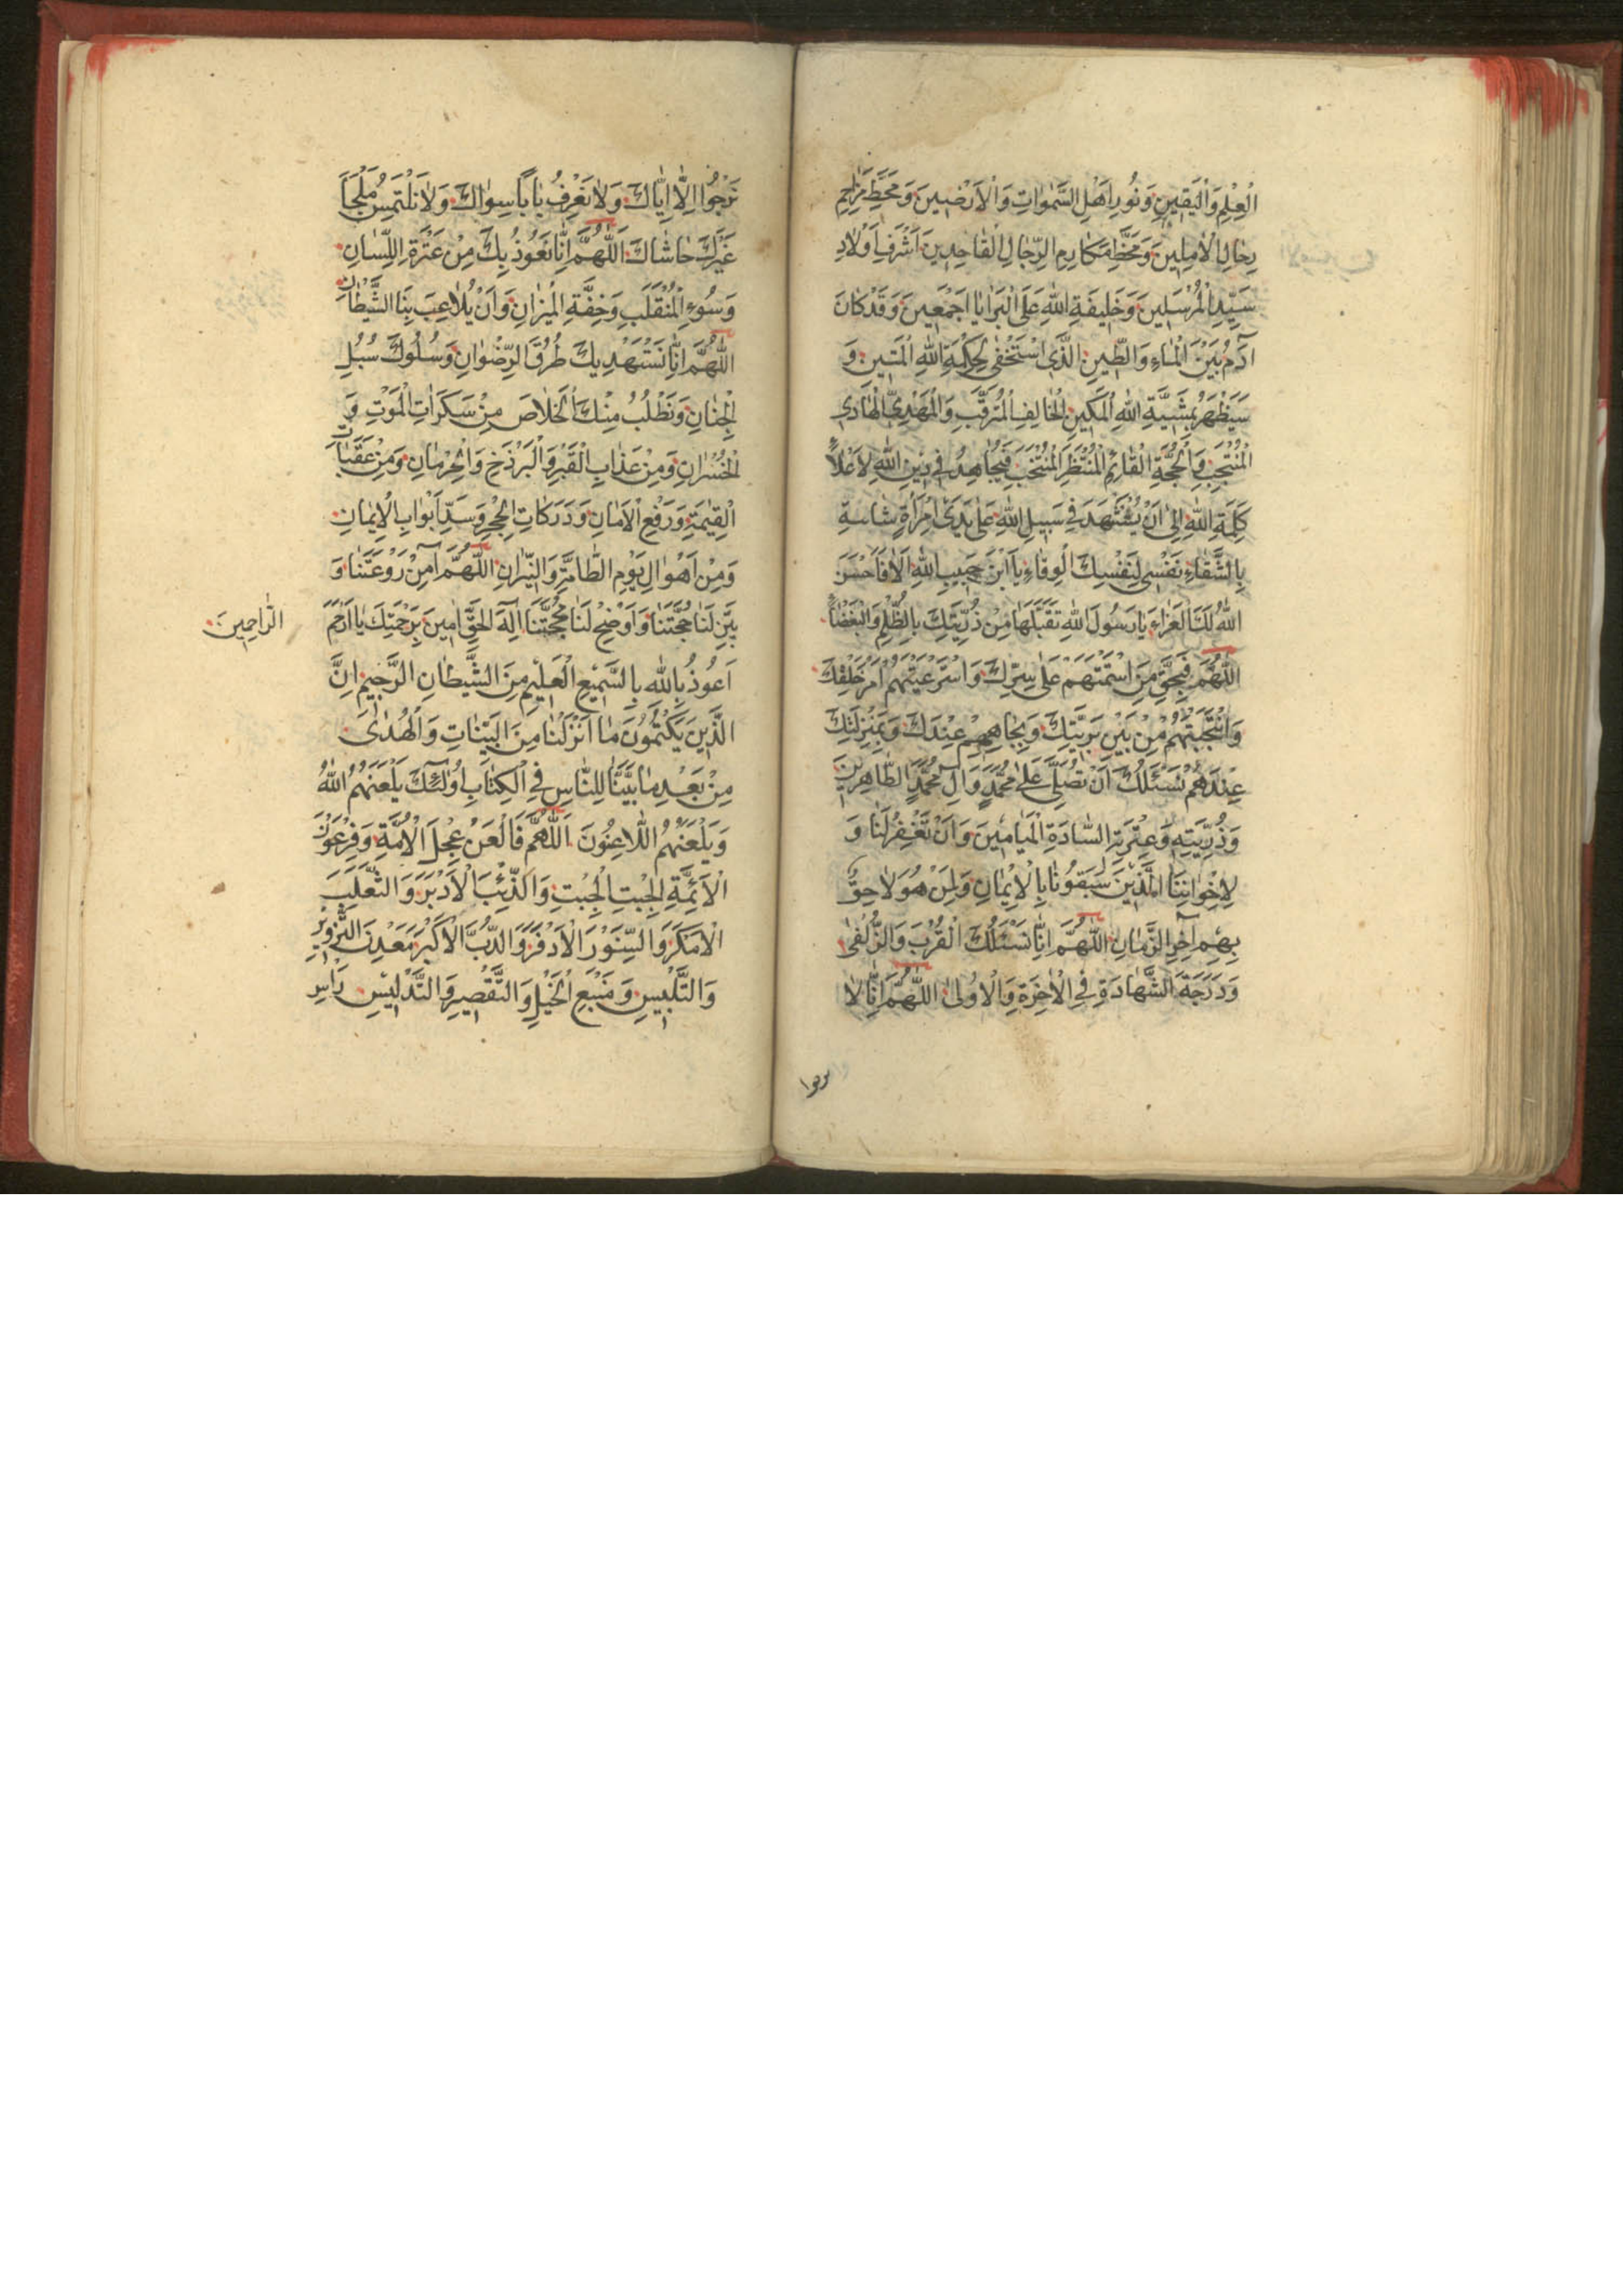 الْعِلْمِ وَالْيَقِينِ وَنُورِ اَهْلِ السَّمٰواتِ وَالْاَرَضِينَ وَمَحَطِّ مَرٰاحِمِ
رِحٰالِ الْاٰمِلِينَ وَمَحَطِّ مَكٰارِمِ الرِّجٰالِ الْقٰاصِدِينَ اَشْرَفِ اَوْلٰادِ
سَيِّدِ الْمُرْسَلِينَ وَخَلِيفَةِ اللّٰهِ عَلَى الْبَرٰايٰا اَجْمَعِينَ وَقَدْ كٰانَ
آدَمُ بَيْنَ الْمٰاءِ وَالطِّينِ الَّذِى اسْتَخْفٰى لِحِكْمَةِ اللّٰهِ الْمَتِينِ وَ
سَيَظْهَرُ بِمَشِيَّةِ اللّٰهِ الْمَكِينِ الْخٰالِفِ الْمُتَرَقَّبِ وَالْمَهْدِىِّ الْهٰادِى
الْمُنْتَجَبِ وَالْحُجَّةِ الْقٰائِمِ الْمُنْتَظَرِ الْمُنْتَخَبِ فَيُجٰاهِدُ فِى دِينِ اللّٰهِ لِاَعْلٰاءِ
كَلِمَةِ اللّٰهِ اِلٰى اَنْ يُسْتَشْهَدَ فِى سَبِيلِ اللّٰهِ عَلٰى يَدَىْ امْرَأَةٍ
بِالشَّقٰاءِ نَفْسِى لِنَفْسِكَ الْوِقٰاءِ يَا ابْنَ حَبِيبِ اللّٰهِ اَلٰا فَاَحْسَنَ
اللّٰهُ لَكَ الْعَزٰاءَ يٰا رَسُولَ اللّٰهِ تَقَبَّلْهٰا مِنْ ذُرِّيَّتِكَ بِالظُّلْمِ وَالْبَغْضٰاءِ
اَللّٰهُمَّ فَبِحَقِّ مَنِ ائْتَمَنْتَهُمْ عَلٰى سِرِّكَ وَاسْتَرْعَيْتَهُمْ اَمْرَ خَلْقِكَ
وَانْتَجَبْتَهُمْ مِنْ بَيْنِ بَرِيَّتِكَ وَبِجٰاهِهِمْ عِنْدَكَ وَبِمَنْزِلَتِكَ
عِنْدَهُمْ نَسْئَلُكَ اَنْ تُصَلِّىَ عَلٰى مُحَمَّدٍ وَآلِ مُحَمَّدٍ الطّٰاهِرِينَ
وَذُرِّيَّتِهِ وَعِتْرَتِهِ السّٰادَةِ الْمَيٰامِينَ وَاَنْ تَغْفِرَ لَنٰا وَ
لِاِخْوٰانِنَا الَّذِينَ سَبَقُونٰا بِالْاِيمٰانِ وَلِمَنْ هُوَ لٰاحِقٌ
بِهِمْ آخِرَ الزَّمٰانِ اَللّٰهُمَّ اِنّٰا نَسْئَلُكَ الْقُرْبَ وَالزُّلْفٰى
وَدَرَجَةَ الشَّهٰادَةِ فِى الْاٰخِرَةِ وَالْاُولٰى اَللّٰهُمَّ اِنّٰا لٰا
نرجوا
نَرْجُوا اِلّٰا اِيّٰاكَ وَلٰا نَعْرِفُ بٰابًا سِوٰاكَ وَلٰا نَلْتَمِسُ مَلْجَأً
غَيْرَكَ حٰاشٰاكَ اَللّٰهُمَّ اِنّٰا نَعُوذُ بِكَ مِنْ عَثْرَةِ اللِّسٰانِ
وَسُوءِ الْمُنْقَلَبِ وَخِفَّةِ الْمِيزٰانِ وَاَنْ يُلٰاعِبَ بِنَا الشَّيْطٰانُ
اَللّٰهُمَّ اِنّٰا نَسْتَهْدِيكَ طُرُقَ الرِّضْوٰانِ وَسُلُوكَ سُبُلِ
الْجِنٰانِ وَنَطْلُبُ مِنْكَ الْخَلٰاصَ مِنْ سَكَرٰاتِ الْمَوْتِ وَ
الْخُسْرٰانِ وَمِنْ عَذٰابِ الْقَبْرِ وَالْبَرْزَخِ وَالْحِرْمٰانِ وَمِنْ عَقَبٰاتِ
الْقِيٰمَةِ وَرَفْعِ الْاَمٰانِ وَدَرَكٰاتِ الْحِجْرِ وَسَدِّ اَبْوٰابِ الْاِيمٰانِ
وَمِنْ اَهْوٰالِ يَوْمِ الطّٰامَّةِ وَالنِّيرٰانِ اَللّٰهُمَّ آمِنْ رَوْعَتَنٰا وَ
بَيِّنْ لَنٰا حُجَّتَنٰا وَاَوْضِحْ لَنٰا مَحَجَّتَنٰا اِلٰهَ الْحَقِّ اٰمِينَ بِرَحْمَتِكَ يٰا اَرْحَمَ
الرّٰاحِمِينَ
اَعُوذُ بِاللّٰهِ بِالسَّمِيعِ الْعَلِيمِ مِنَ الشَّيْطٰانِ الرَّجِيمِ اِنَّ
الَّذِينَ يَكْتُمُونَ مٰا اَنْزَلْنٰا مِنَ الْبَيِّنٰاتِ وَالْهُدٰى
مِنْ بَعْدِ مٰا بَيَّنّٰا لِلنّٰاسِ فِى الْكِتٰابِ اُولٰئِكَ يَلْعَنُهُمُ اللّٰهُ
وَيَلْعَنُهُمُ اللّٰاعِنُونَ اَللّٰهُمَّ فَالْعَنْ عِجْلَ الْاُمَّةِ وَفِرْعَوْنَ
الْاَئِمَّةِ الْجِبْتِ الْجِبْتِ وَالذِّئْبَ الْاَدْبَرَ وَالثَّعْلَبَ
الْاَمْكَرَ وَالسِّنَّوْرَ الْاَدْفَرَ وَالدُّبَّ الْاَكْبَرَ مَعْدِنَ التَّزْوِيرِ
وَالتَّلْبِيسِ وَمَنْبَعِ الْحِيَلِ وَالتَّقْصِيرِ وَالتَّدْلِيسِ رَاْسِ